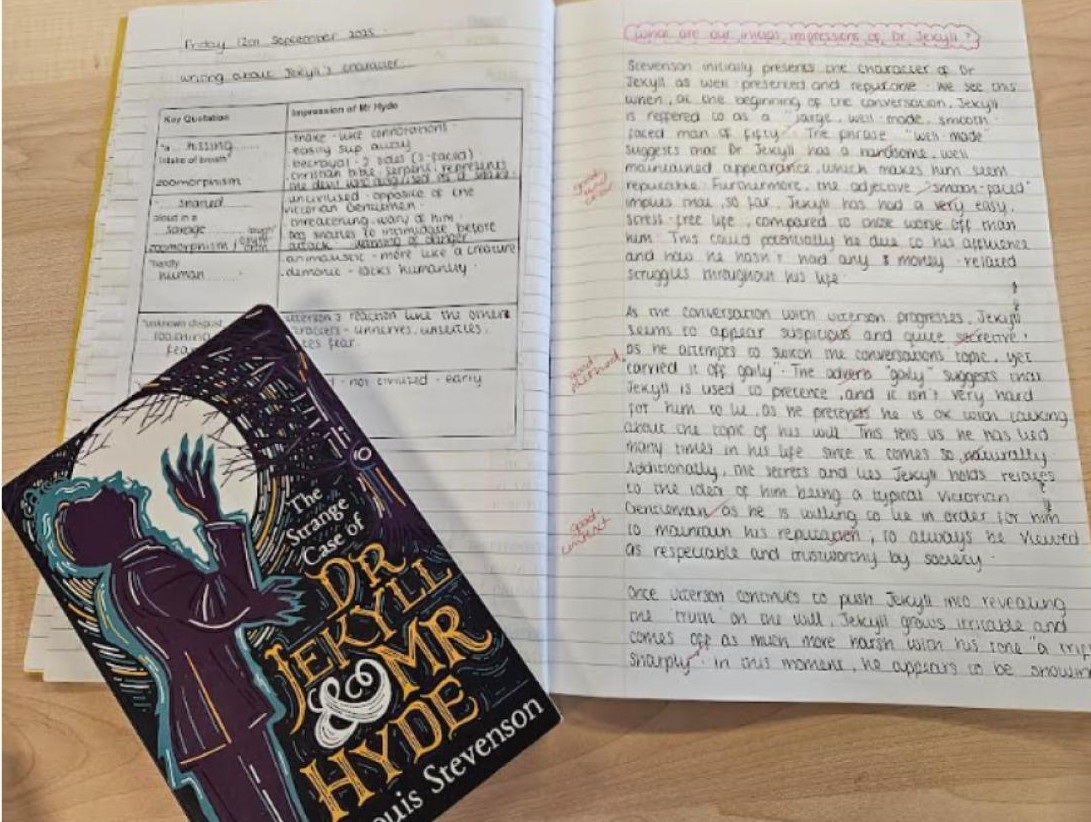 Friday 12th September 2025
Writing about Jekyll's character
Key Quotation
Impression of Mr Hyde
"a hissing
intake of breath"
zoomorphism
snake - like connotations.
easily slip away
betrayal - 2 sides (2-faced)
christian bible, serpent represents
the devil was disguised as a snake.
snarled
aloud in a
savage laugh"
zoomorphism
uncivilised - opposite of the
Victorian Gentleman.
threatening, wary of him.
dog snarles to intimidate before
attack - warning of danger
"hardly
human
animalistic - more like a creature
demonic - lacks humanity.
"unknown disgust
loathing
fear
utterson's reaction like the others
unnerves, unsettles,
fear.
not civilized - early
What are our initial impressions of Dr Jekyll?
Stevenson initially presents the character of Dr
Jekyll as well-presented and reputable. We see this
when, at the beginning of the conversation, Jekyll
is reffered to as a "large, well-made, smooth-
faced man of fifty". The phrase "well-made"
suggests that Dr Jekyll has a handsome, well
maintained appearance, which makes him seem
reputable. Furthermore, the adjective "smooth-faced"
implies that, so far, Jekyll has had a very easy,
stress-free life, compared to those worse off than
him. This could potentially be due to his affluence
and how he hasn't had any money-related
struggles throughout his life.
As the conversation with utterson progresses, Jekyll
seems to appear suspicious and quite secretive,
as he attempts to switch the conversations topic, yet
carried it off gaily". The adverb "gaily" suggests that
Jekyll is used to pretence, and it isn't very hard
for him to lie, as he pretends he is ok with talking
about the topic of his will. This tells us he has lied
many times in his life since it comes so naturally.
Additionally, the secrets and lies Jekyll holds relates
to the idea of him being a typical Victorian
Gentleman, as he is willing to lie in order for him
to maintain his reputation, to always be viewed
as respectable and trustworthy by society.
good
context
Once utterson continues to push Jekyll into revealing
the "truth" on the will, Jekyll grows irritable and
comes off as much more harsh with his tone "a trifle
sharply". In this moment, he appears to be showing
The
Strange
Case of
DR
JEKYLL
& MR
HYDE
Louis Stevenson